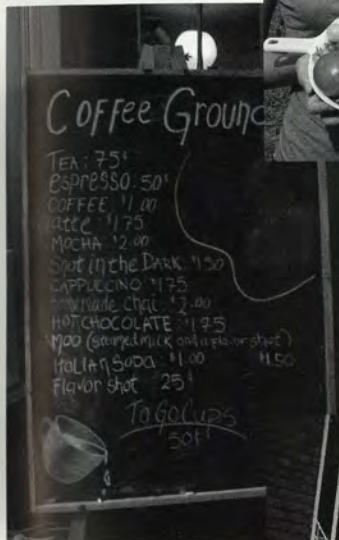 Coffee Ground
TEA: 75¢
espresso: 50¢
COFFEE $1.00
latte $1.75
MOCHA $2.00
Shot in the DARK $1.50
CAPPUCCINO $1.75
homemade chai $2.00
HOT CHOCOLATE $1.75
MOO (steamed milk and a flavor shot)
$1.50
ITALIAN SODA $1.00
Flavor shot 25¢
To Go Cups
50¢